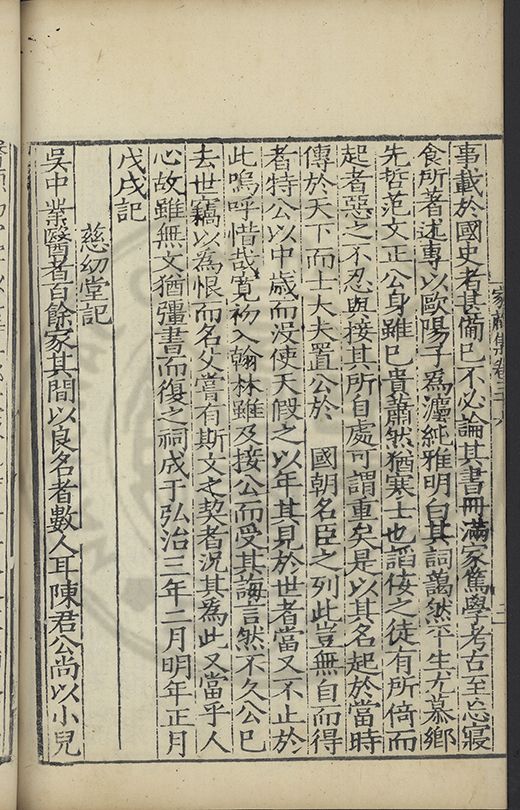 事載於國史者甚備已不必論其書冊滿家篤學考古至忘寢
食所著述專以歐陽子為灋純雅明白其詞藹然平生尤慕鄉
先哲范文正公身雖已貴蕭然猶寒士也謟佞之徒有所倚而
起者惡之不忍與接其所自處可謂重矣是以其名起於當時
傳於天下而士大夫置公於 國朝名臣之列此豈無自而得
者特公以中歲而沒使天假之以年其見於世者當又不止於
此嗚呼惜哉寬初入翰林雖及接公而受其誨言然不久公已
去世竊以為恨而名父嘗有斯文之契者況其為此又當乎人
心故雖無文猶彊書而復之祠成于弘治三年二月明年正月
戊戌記
慈幼堂記
吳中業醫者百餘家其間以良名者數人耳陳君公尚以小兒
家藏集卷三十